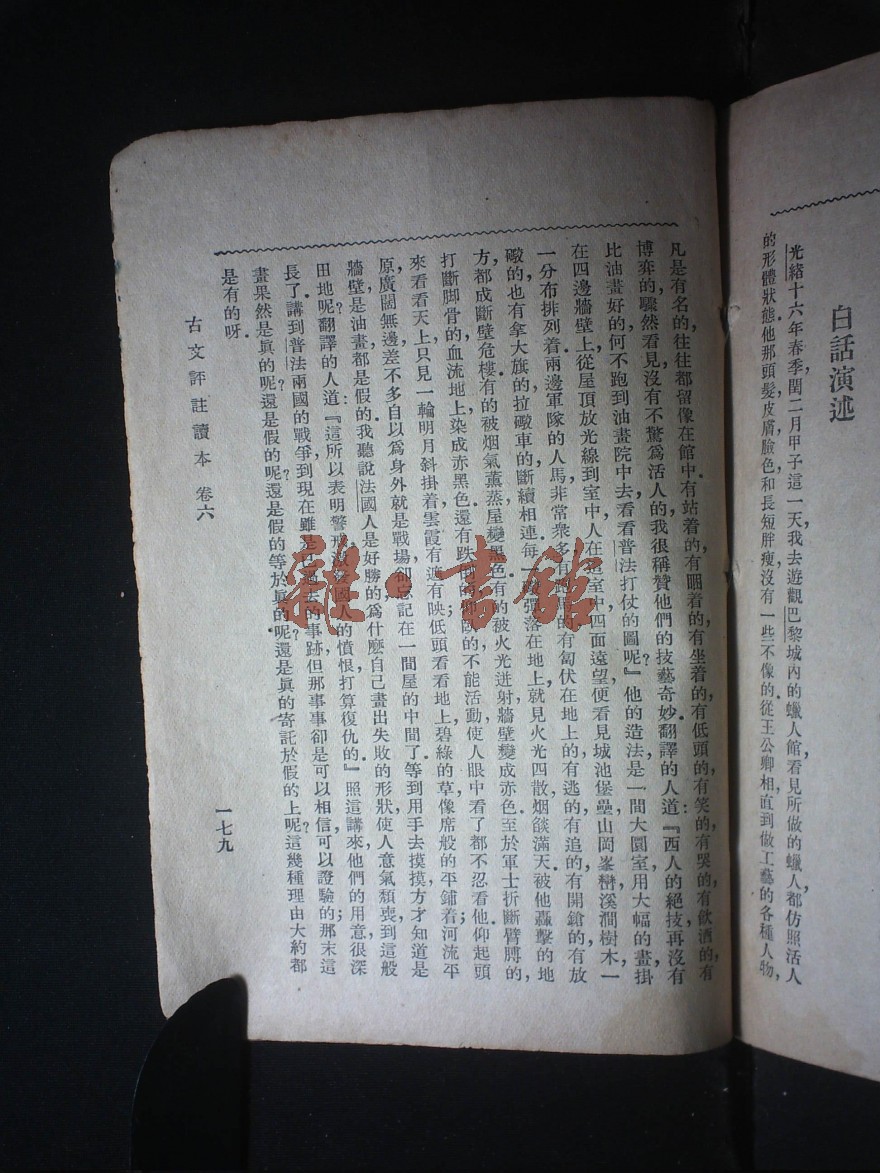 白話演述
光緒十六年春季，閏二月甲子這一天，我去遊觀巴黎城內的蠟人館，看見所做的蠟人，都仿照活人
的形體狀態，他那頭髮皮膚臉色和長短胖瘦，沒有一些不像的，從王公卿相，直到做工藝的各種人物，
凡是有名的，往往都留像在館中，有站着的，有睏着的，有坐着的，有低頭的，有笑的，有哭的，有飲酒的，有
博弈的，驟然看見，沒有不驚爲活人的，我很稱贊他們的技藝奇妙，翻譯的人道：『西人的絕技，再沒有
比油畫好的，何不跑到油畫院中去看看普法打仗的圖呢？』他的造法，是一間大圜室，用大幅的畫掛
在四邊牆壁上，從屋頂放光線到室中，人在室中，四面遠望，便看見城池堡壘山岡峯巒溪澗樹木，一
一分布排列着，兩邊軍隊的人馬非常衆多，有的有匐伏在地上的，有逃的，有追的，有開鎗的，有放
礮的，也有拿大旗的，拉礮車的，斷續相連，每一彈落在地上，就見火光四散，烟燄滿天，被他轟擊的地
方，都成斷壁危樓，有的被烟氣薰蒸，屋變黑色，有的被火光迸射，牆壁變成赤色，至於軍士折斷臂膊的，
打斷脚骨的，血流地上，染成赤黑色，還有跌倒的，仰臥的，不能活動，使人眼中看了，都不忍看他，仰起頭
來看看天上，只見一輪明月斜掛着，雲霞有遮有映，低頭看看地上，碧綠的草，像席般的平鋪着；河流平
原，廣闊無邊，差不多自以爲身外就是戰場，卻忘記在一間屋的中間了，等到用手去摸摸，方才知道是
牆壁，是油畫，都是假的，我聽說法國人是好勝的，爲什麼自己畫出失敗的形狀，使人意氣頹喪到這般
田地呢？翻譯的人道：『這所以表明警戒，激法國人的憤恨，打算復仇的，』照這講來，他們的用意很深
長了，講到普法兩國的戰爭，到現在雖是已過去的事跡，但那事事卻是可以相信，可以證驗的；那末這
畫果然是眞的呢？還是假的呢？還是假的等於眞的呢？還是眞的寄託於假的上呢？這幾種理由，大約都
是有的呀。
古文評註讀本 卷六
一七九
雜·書館